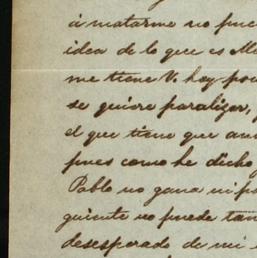 á matarme no pue
idea de lo que es Me
me tiene V. hoy por
se quiere paralizar,
el que tiene que an
pues como he dicho
Pablo no gana ni p
guiente no puede tam
desesperado de mi